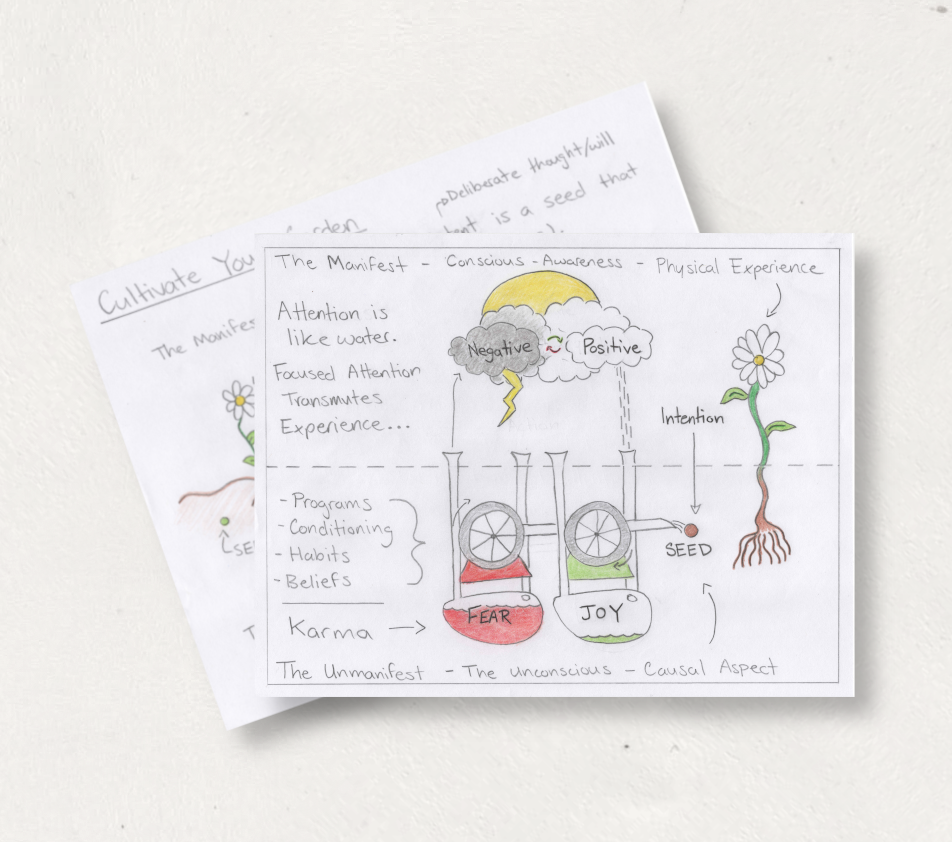 Deliberate thought/will
is a seed that
Cultivate You rden
The Manifes
SE
T
The Manifest - Conscious-Awareness - Physical Experience
Attention is
like water.
Focused Attention
Transmutes
Experience...
Negative
Positive
Intention
- Programs
- Conditioning
- Habits
- Beliefs
Karma
FEAR
JOY
SEED
The Unmanifest - The unconscious - Causal Aspect